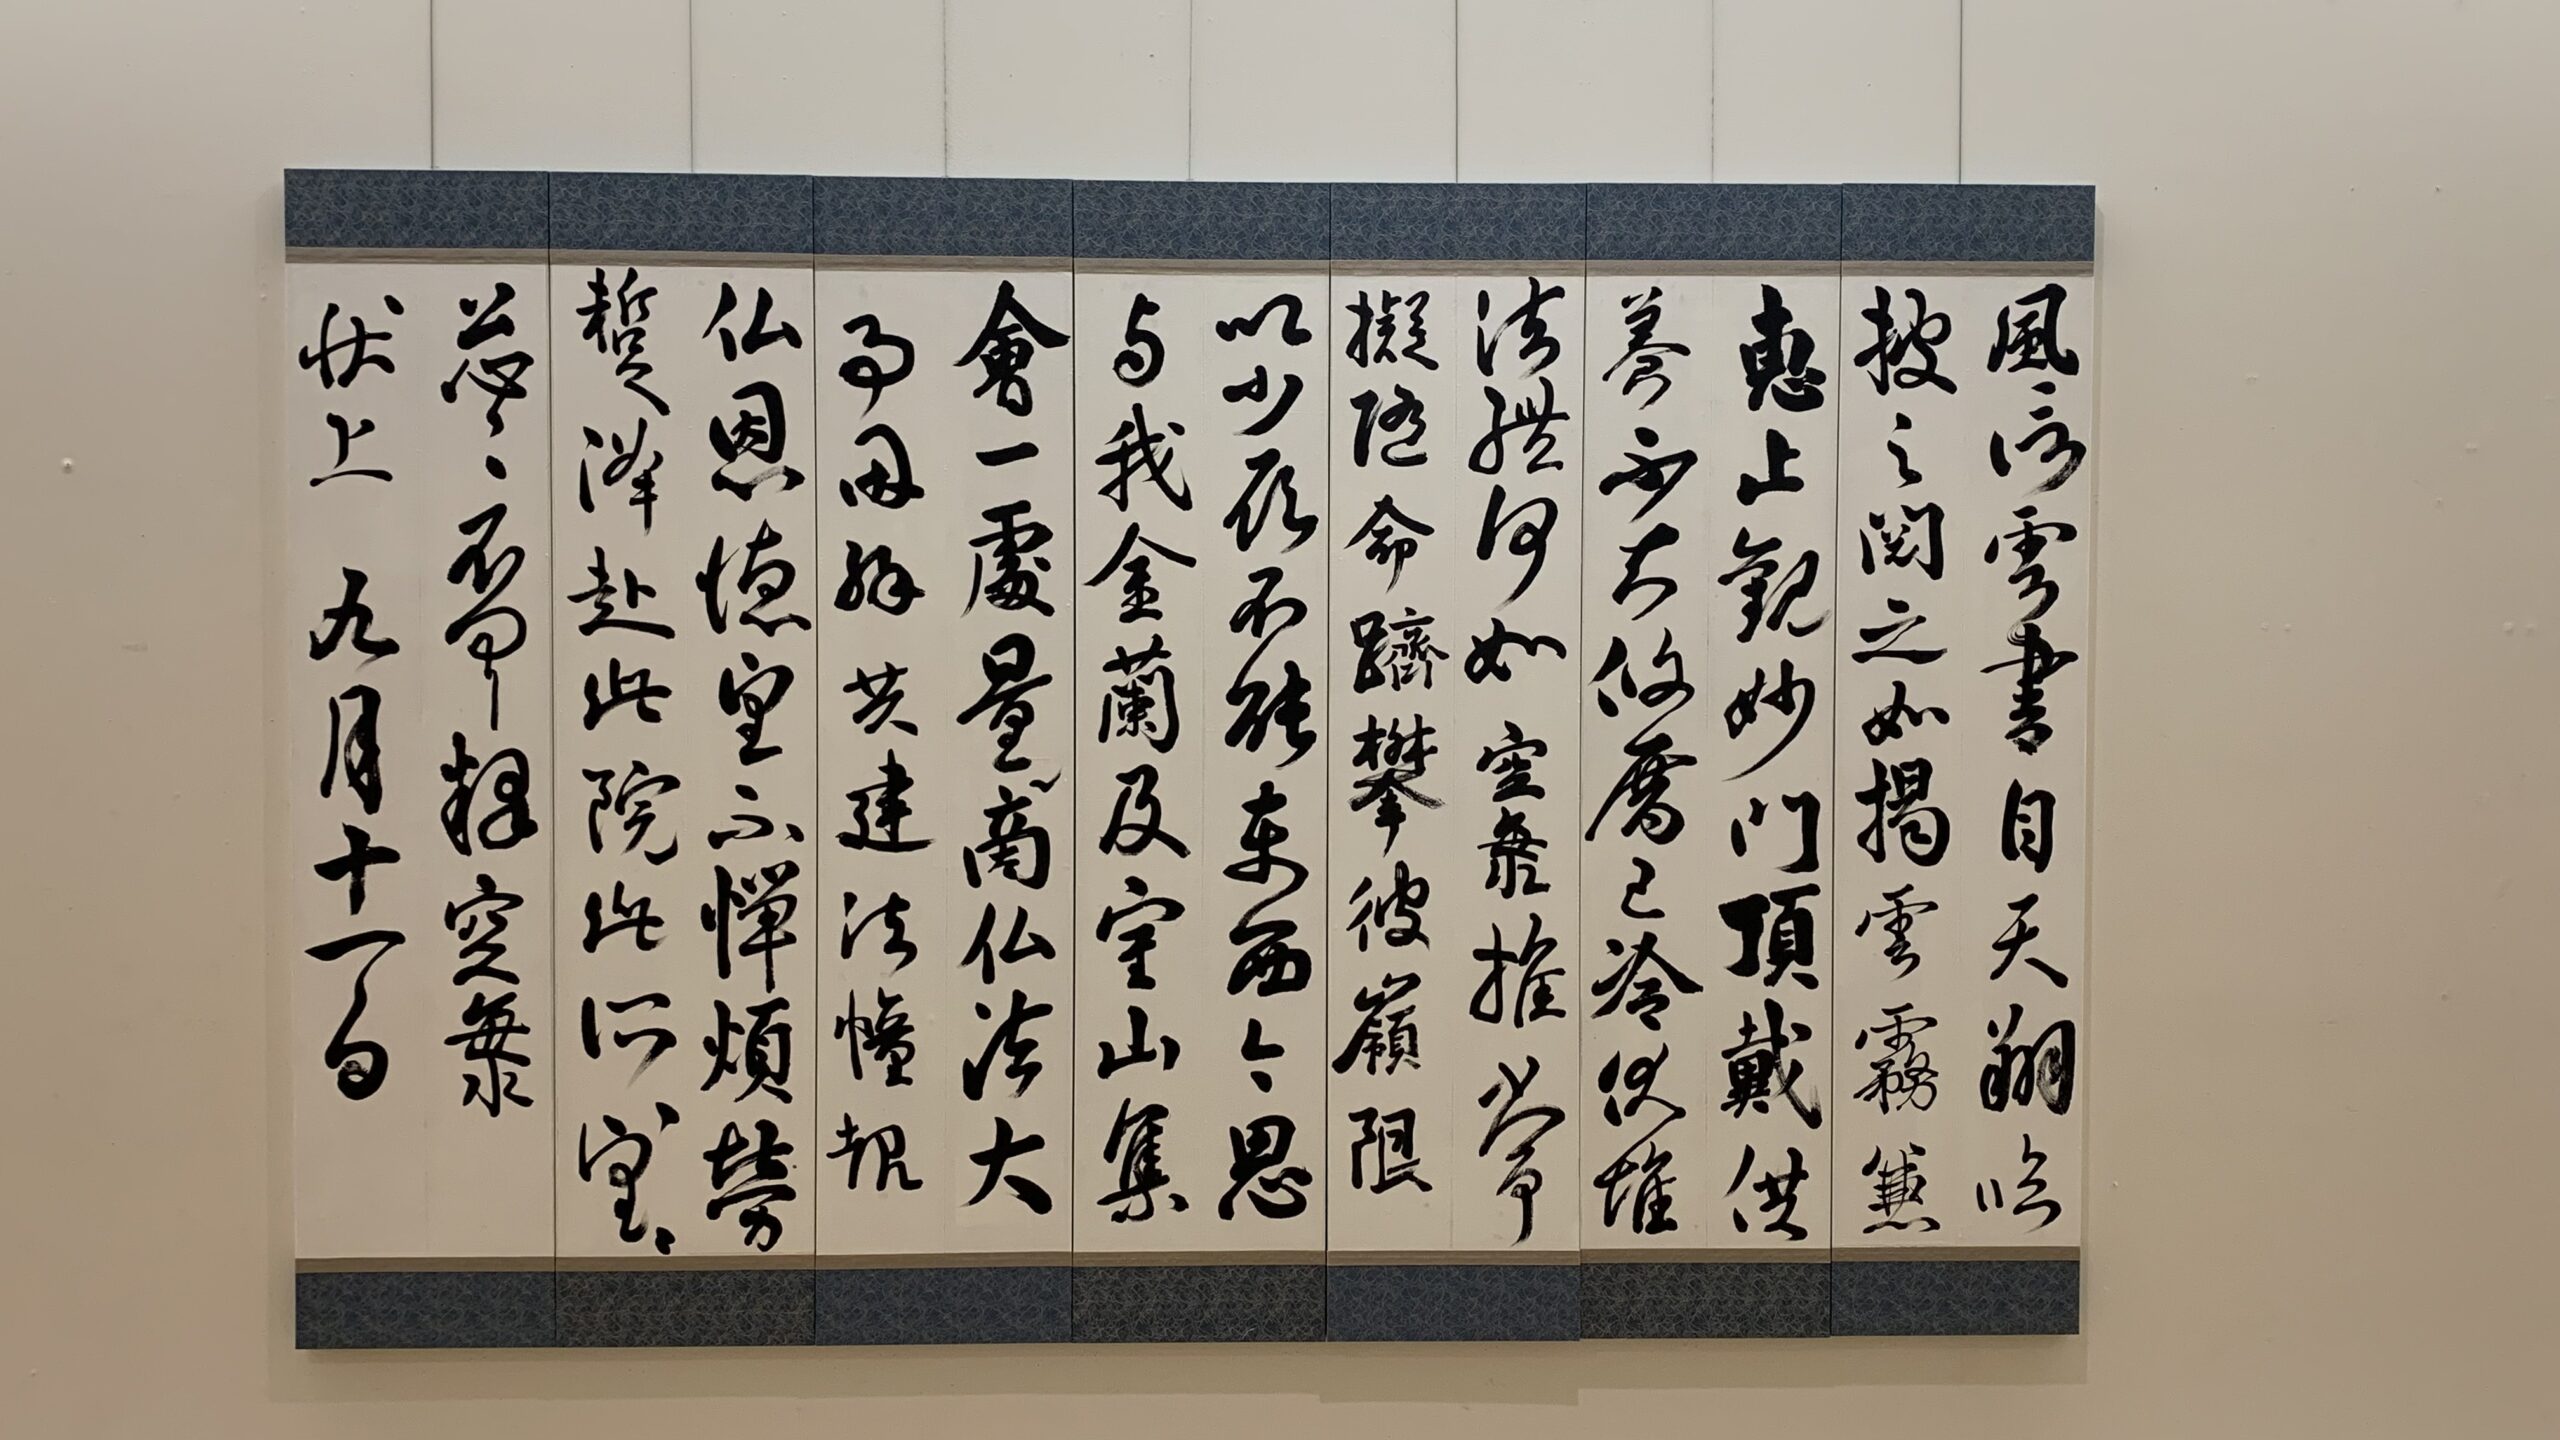 風信雲書自天翔臨
披之閲之如掲雲霧兼
恵止観妙門頂戴供
養不知攸厝已冷伏惟
法體何如空海推常
擬随命躋攀彼嶺限
以少願不能東西今思
与我金蘭及室山集
會一處量商仏法大
事因縁共建法幢報
仏恩徳望不憚煩勞
蹔降赴此院此所望〻
忩〻〻不具釋空海
状上 九月十一日